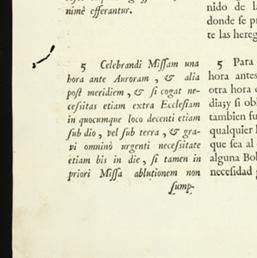 nimè efferantur.
5 Celebrandi Missam una
hora ante Auroram, & alia
post meridiem, & si cogat ne-
cessitas etiam extra Ecclesiam
in quocumque loco decenti etiam
sub dio, vel sub terra, & gra-
vi omninò urgenti necessitate
etiam bis in die, si tamen in
priori Missa ablutionem non
sump-
nido de la
donde se pr
te las hereg
5 Para
hora antes
otra hora d
dias, y si obl
tambien fu
qualquier l
que sea al
alguna Bob
necesidad g